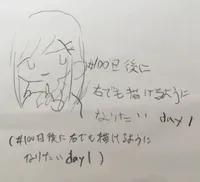 #100日後に
右でも描けるように
なりたい day1
(#100日後に右でも描けるように
なりたい day1)